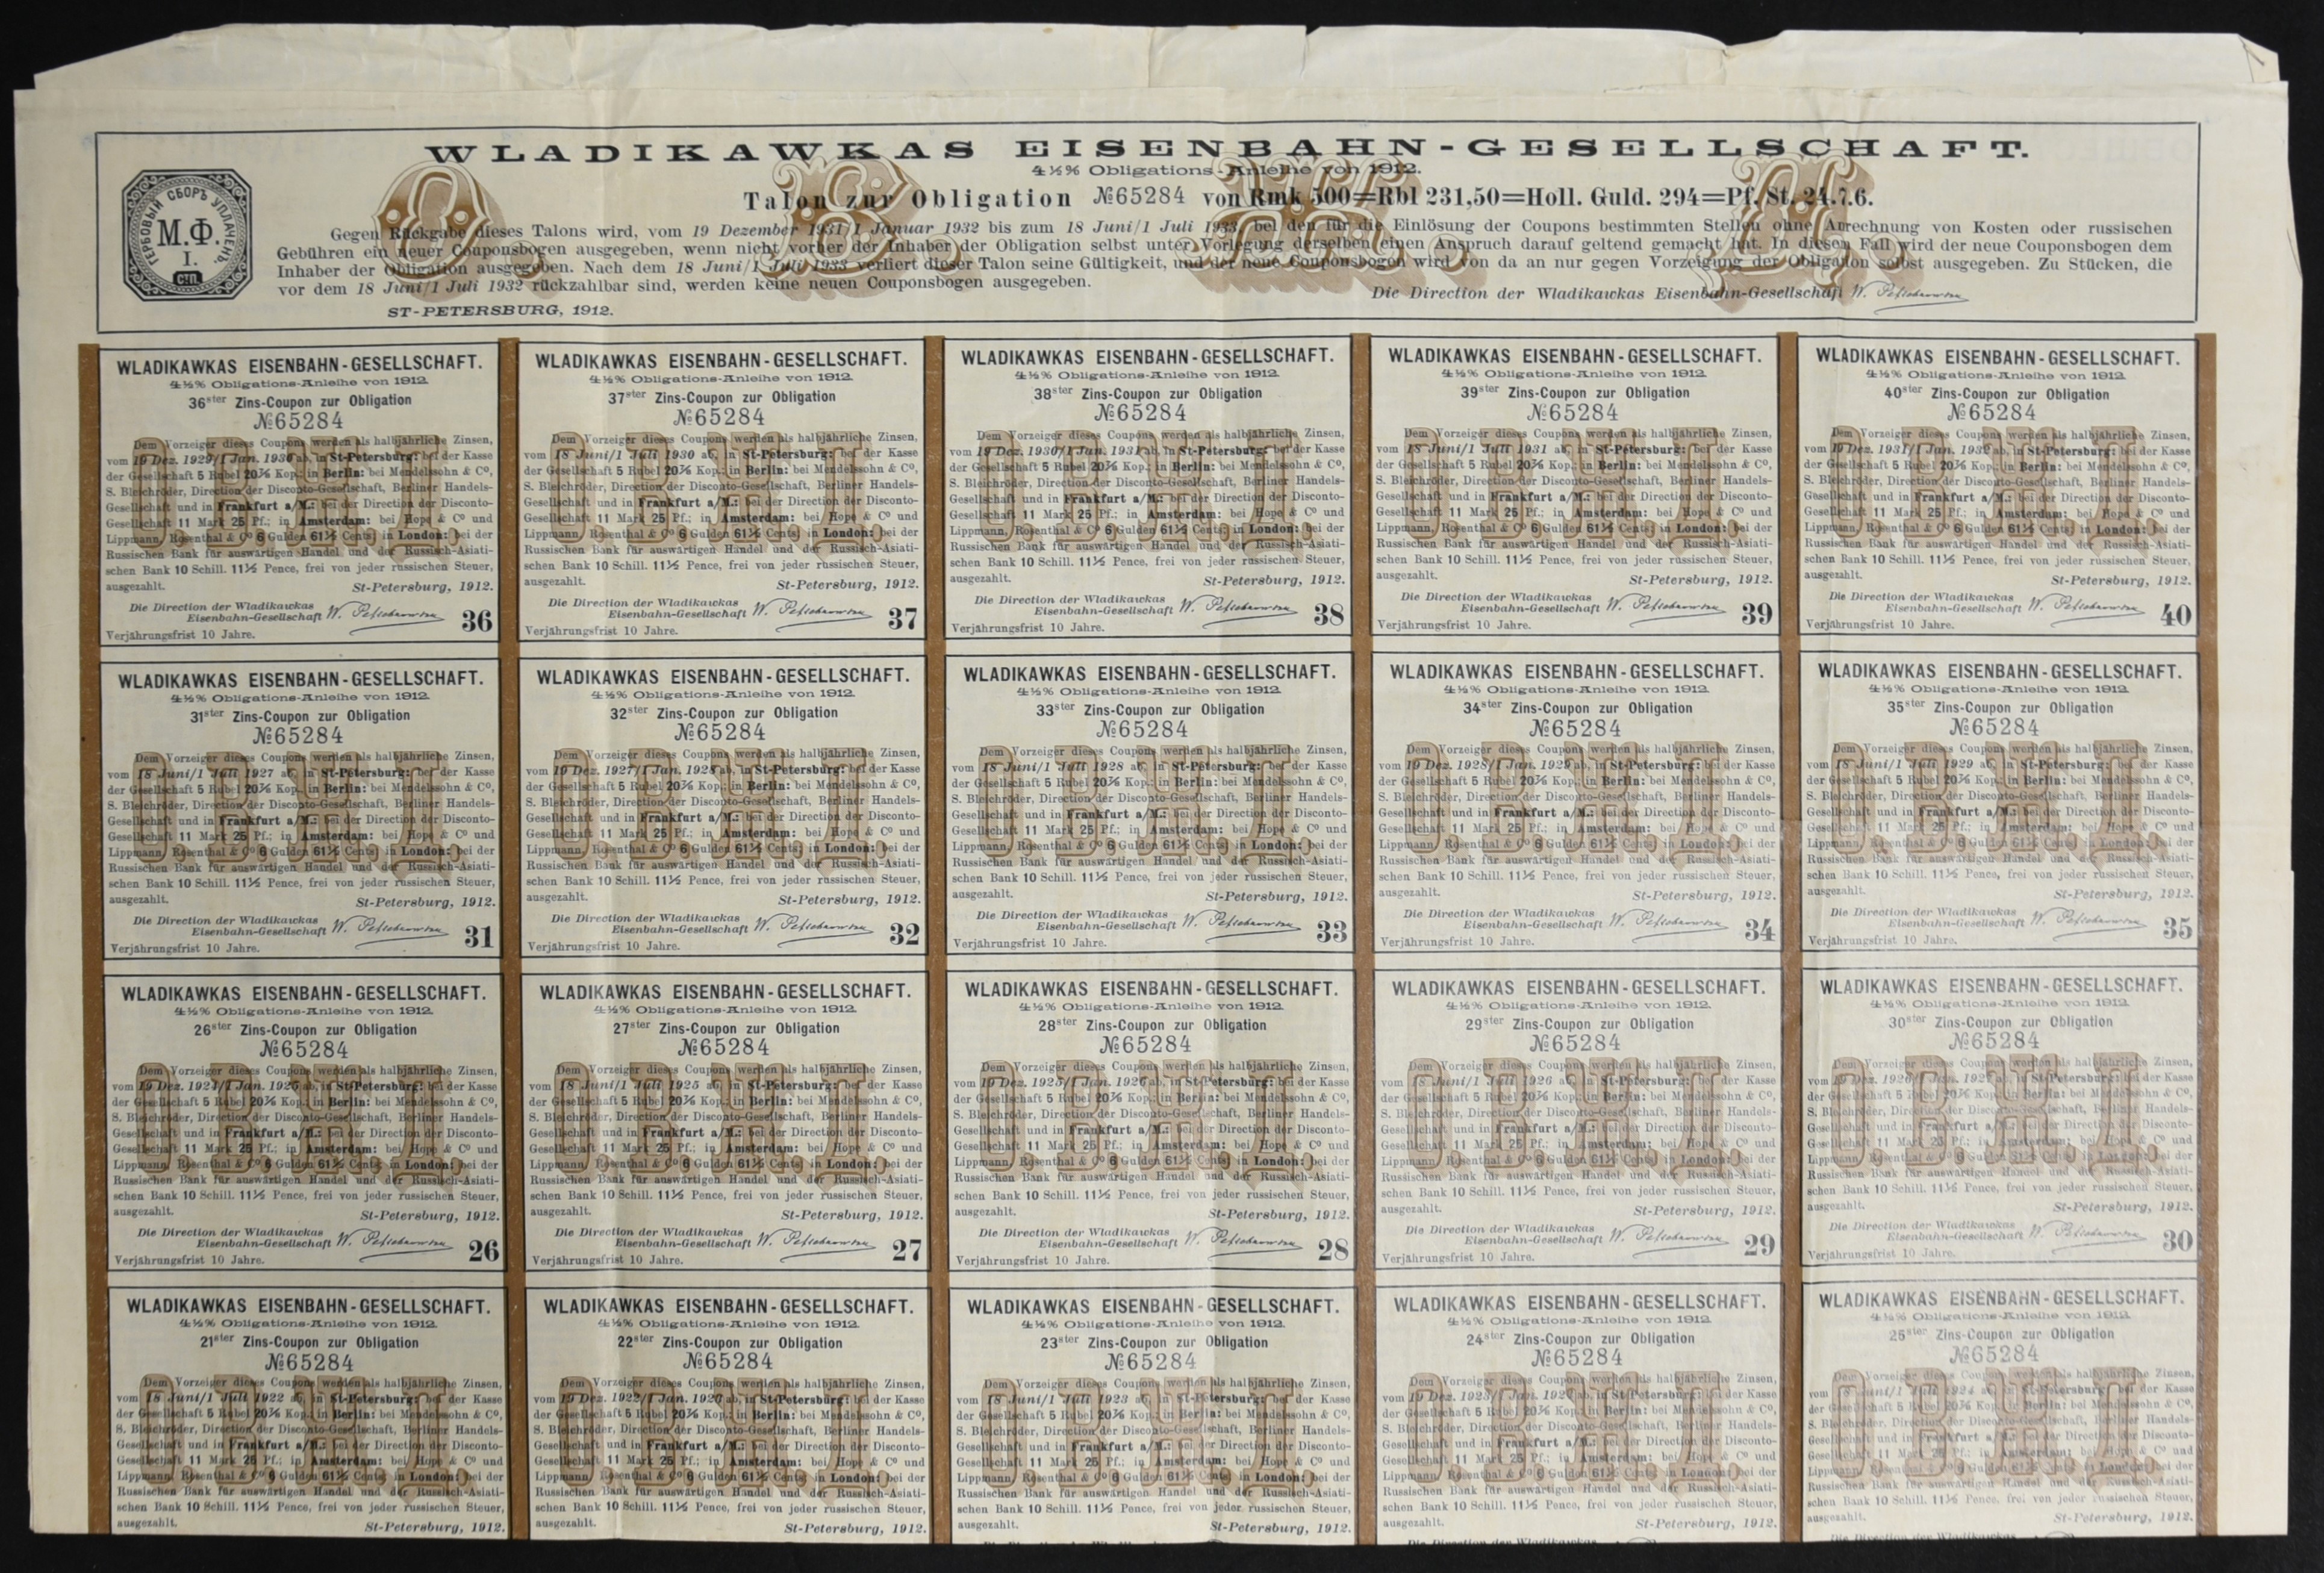 WLADIKAWKAS EISENBAHN-GESELLSCHAFT.
4½% Obligations-Anleihe von 1912.
Talon zur Obligation №65284 von Rmk 500=Rbl 231,50=Holl. Guld. 294=Pf. St. 24.7.6.
ГЕРБОВЫЙ СБОРЪ УПЛАЧЕНЪ.
М.Ф.
I.
С.П.
О. В. Ж. Д.
Gegen Rückgabe dieses Talons wird, vom 19 Dezember 1931/1 Januar 1932 bis zum 18 Juni/1 Juli 1933 bei den für die Einlösung der Coupons bestimmten Stellen ohne Anrechnung von Kosten oder russischen
Gebühren ein neuer Couponsbogen ausgegeben, wenn nicht vorher der Inhaber der Obligation selbst unter Vorlegung derselben einen Anspruch darauf geltend gemacht hat. In diesem Fall wird der neue Couponsbogen dem
Inhaber der Obligation ausgegeben. Nach dem 18 Juni/1 Juli 1933 verliert dieser Talon seine Gültigkeit, und der neue Couponsbogen wird von da an nur gegen Vorzeigung der Obligation selbst ausgegeben. Zu Stücken, die
vor dem 18 Juni/1 Juli 1932 rückzahlbar sind, werden keine neuen Couponsbogen ausgegeben.
Die Direction der Wladikawkas Eisenbahn-Gesellschaft
ST-PETERSBURG, 1912.
WLADIKAWKAS EISENBAHN-GESELLSCHAFT.
4½% Obligations-Anleihe von 1912.
36ster Zins-Coupon zur Obligation
№65284
Dem Vorzeiger dieses Coupons werden als halbjährliche Zinsen,
vom 19 Dez. 1929/1 Jan. 1930 ab, in St-Petersburg: bei der Kasse
der Gesellschaft 5 Rubel 20⅞ Kop.; in Berlin: bei Mendelssohn & Cº,
S. Bleichröder, Direction der Disconto-Gesellschaft, Berliner Handels-
Gesellschaft und in Frankfurt a/M.: bei der Direction der Disconto-
Gesellschaft 11 Mark 25 Pf.; in Amsterdam: bei Hope & Cº und
Lippmann, Rosenthal & Cº 6 Gulden 61½ Cents; in London: bei der
Russischen Bank für auswärtigen Handel und der Russisch-Asiati-
schen Bank 10 Schill. 11½ Pence, frei von jeder russischen Steuer,
ausgezahlt. St-Petersburg, 1912.
Die Direction der Wladikawkas
Eisenbahn-Gesellschaft
36
Verjährungsfrist 10 Jahre.
WLADIKAWKAS EISENBAHN-GESELLSCHAFT.
4½% Obligations-Anleihe von 1912.
37ster Zins-Coupon zur Obligation
№65284
Dem Vorzeiger dieses Coupons werden als halbjährliche Zinsen,
vom 18 Juni/1 Juli 1930 ab, in St-Petersburg: bei der Kasse
der Gesellschaft 5 Rubel 20⅞ Kop.; in Berlin: bei Mendelssohn & Cº,
S. Bleichröder, Direction der Disconto-Gesellschaft, Berliner Handels-
Gesellschaft und in Frankfurt a/M.: bei der Direction der Disconto-
Gesellschaft 11 Mark 25 Pf.; in Amsterdam: bei Hope & Cº und
Lippmann, Rosenthal & Cº 6 Gulden 61½ Cents; in London: bei der
Russischen Bank für auswärtigen Handel und der Russisch-Asiati-
schen Bank 10 Schill. 11½ Pence, frei von jeder russischen Steuer,
ausgezahlt. St-Petersburg, 1912.
Die Direction der Wladikawkas
Eisenbahn-Gesellschaft
37
Verjährungsfrist 10 Jahre.
WLADIKAWKAS EISENBAHN-GESELLSCHAFT.
4½% Obligations-Anleihe von 1912.
38ster Zins-Coupon zur Obligation
№65284
Dem Vorzeiger dieses Coupons werden als halbjährliche Zinsen,
vom 19 Dez. 1930/1 Jan. 1931 ab, in St-Petersburg: bei der Kasse
der Gesellschaft 5 Rubel 20⅞ Kop.; in Berlin: bei Mendelssohn & Cº,
S. Bleichröder, Direction der Disconto-Gesellschaft, Berliner Handels-
Gesellschaft und in Frankfurt a/M.: bei der Direction der Disconto-
Gesellschaft 11 Mark 25 Pf.; in Amsterdam: bei Hope & Cº und
Lippmann, Rosenthal & Cº 6 Gulden 61½ Cents; in London: bei der
Russischen Bank für auswärtigen Handel und der Russisch-Asiati-
schen Bank 10 Schill. 11½ Pence, frei von jeder russischen Steuer,
ausgezahlt. St-Petersburg, 1912.
Die Direction der Wladikawkas
Eisenbahn-Gesellschaft
38
Verjährungsfrist 10 Jahre.
WLADIKAWKAS EISENBAHN-GESELLSCHAFT.
4½% Obligations-Anleihe von 1912.
39ster Zins-Coupon zur Obligation
№65284
Dem Vorzeiger dieses Coupons werden als halbjährliche Zinsen,
vom 18 Juni/1 Juli 1931 ab, in St-Petersburg: bei der Kasse
der Gesellschaft 5 Rubel 20⅞ Kop.; in Berlin: bei Mendelssohn & Cº,
S. Bleichröder, Direction der Disconto-Gesellschaft, Berliner Handels-
Gesellschaft und in Frankfurt a/M.: bei der Direction der Disconto-
Gesellschaft 11 Mark 25 Pf.; in Amsterdam: bei Hope & Cº und
Lippmann, Rosenthal & Cº 6 Gulden 61½ Cents; in London: bei der
Russischen Bank für auswärtigen Handel und der Russisch-Asiati-
schen Bank 10 Schill. 11½ Pence, frei von jeder russischen Steuer,
ausgezahlt. St-Petersburg, 1912.
Die Direction der Wladikawkas
Eisenbahn-Gesellschaft
39
Verjährungsfrist 10 Jahre.
WLADIKAWKAS EISENBAHN-GESELLSCHAFT.
4½% Obligations-Anleihe von 1912.
40ster Zins-Coupon zur Obligation
№65284
Dem Vorzeiger dieses Coupons werden als halbjährliche Zinsen,
vom 19 Dez. 1931/1 Jan. 1932 ab, in St-Petersburg: bei der Kasse
der Gesellschaft 5 Rubel 20⅞ Kop.; in Berlin: bei Mendelssohn & Cº,
S. Bleichröder, Direction der Disconto-Gesellschaft, Berliner Handels-
Gesellschaft und in Frankfurt a/M.: bei der Direction der Disconto-
Gesellschaft 11 Mark 25 Pf.; in Amsterdam: bei Hope & Cº und
Lippmann, Rosenthal & Cº 6 Gulden 61½ Cents; in London: bei der
Russischen Bank für auswärtigen Handel und der Russisch-Asiati-
schen Bank 10 Schill. 11½ Pence, frei von jeder russischen Steuer,
ausgezahlt. St-Petersburg, 1912.
Die Direction der Wladikawkas
Eisenbahn-Gesellschaft
40
Verjährungsfrist 10 Jahre.
WLADIKAWKAS EISENBAHN-GESELLSCHAFT.
4½% Obligations-Anleihe von 1912.
31ster Zins-Coupon zur Obligation
№65284
Dem Vorzeiger dieses Coupons werden als halbjährliche Zinsen,
vom 18 Juni/1 Juli 1927 ab, in St-Petersburg: bei der Kasse
der Gesellschaft 5 Rubel 20⅞ Kop.; in Berlin: bei Mendelssohn & Cº,
S. Bleichröder, Direction der Disconto-Gesellschaft, Berliner Handels-
Gesellschaft und in Frankfurt a/M.: bei der Direction der Disconto-
Gesellschaft 11 Mark 25 Pf.; in Amsterdam: bei Hope & Cº und
Lippmann, Rosenthal & Cº 6 Gulden 61½ Cents; in London: bei der
Russischen Bank für auswärtigen Handel und der Russisch-Asiati-
schen Bank 10 Schill. 11½ Pence, frei von jeder russischen Steuer,
ausgezahlt. St-Petersburg, 1912.
Die Direction der Wladikawkas
Eisenbahn-Gesellschaft
31
Verjährungsfrist 10 Jahre.
WLADIKAWKAS EISENBAHN-GESELLSCHAFT.
4½% Obligations-Anleihe von 1912.
32ster Zins-Coupon zur Obligation
№65284
Dem Vorzeiger dieses Coupons werden als halbjährliche Zinsen,
vom 19 Dez. 1927/1 Jan. 1928 ab, in St-Petersburg: bei der Kasse
der Gesellschaft 5 Rubel 20⅞ Kop.; in Berlin: bei Mendelssohn & Cº,
S. Bleichröder, Direction der Disconto-Gesellschaft, Berliner Handels-
Gesellschaft und in Frankfurt a/M.: bei der Direction der Disconto-
Gesellschaft 11 Mark 25 Pf.; in Amsterdam: bei Hope & Cº und
Lippmann, Rosenthal & Cº 6 Gulden 61½ Cents; in London: bei der
Russischen Bank für auswärtigen Handel und der Russisch-Asiati-
schen Bank 10 Schill. 11½ Pence, frei von jeder russischen Steuer,
ausgezahlt. St-Petersburg, 1912.
Die Direction der Wladikawkas
Eisenbahn-Gesellschaft
32
Verjährungsfrist 10 Jahre.
WLADIKAWKAS EISENBAHN-GESELLSCHAFT.
4½% Obligations-Anleihe von 1912.
33ster Zins-Coupon zur Obligation
№65284
Dem Vorzeiger dieses Coupons werden als halbjährliche Zinsen,
vom 18 Juni/1 Juli 1928 ab, in St-Petersburg: bei der Kasse
der Gesellschaft 5 Rubel 20⅞ Kop.; in Berlin: bei Mendelssohn & Cº,
S. Bleichröder, Direction der Disconto-Gesellschaft, Berliner Handels-
Gesellschaft und in Frankfurt a/M.: bei der Direction der Disconto-
Gesellschaft 11 Mark 25 Pf.; in Amsterdam: bei Hope & Cº und
Lippmann, Rosenthal & Cº 6 Gulden 61½ Cents; in London: bei der
Russischen Bank für auswärtigen Handel und der Russisch-Asiati-
schen Bank 10 Schill. 11½ Pence, frei von jeder russischen Steuer,
ausgezahlt. St-Petersburg, 1912.
Die Direction der Wladikawkas
Eisenbahn-Gesellschaft
33
Verjährungsfrist 10 Jahre.
WLADIKAWKAS EISENBAHN-GESELLSCHAFT.
4½% Obligations-Anleihe von 1912.
34ster Zins-Coupon zur Obligation
№65284
Dem Vorzeiger dieses Coupons werden als halbjährliche Zinsen,
vom 19 Dez. 1928/1 Jan. 1929 ab, in St-Petersburg: bei der Kasse
der Gesellschaft 5 Rubel 20⅞ Kop.; in Berlin: bei Mendelssohn & Cº,
S. Bleichröder, Direction der Disconto-Gesellschaft, Berliner Handels-
Gesellschaft und in Frankfurt a/M.: bei der Direction der Disconto-
Gesellschaft 11 Mark 25 Pf.; in Amsterdam: bei Hope & Cº und
Lippmann, Rosenthal & Cº 6 Gulden 61½ Cents; in London: bei der
Russischen Bank für auswärtigen Handel und der Russisch-Asiati-
schen Bank 10 Schill. 11½ Pence, frei von jeder russischen Steuer,
ausgezahlt. St-Petersburg, 1912.
Die Direction der Wladikawkas
Eisenbahn-Gesellschaft
34
Verjährungsfrist 10 Jahre.
WLADIKAWKAS EISENBAHN-GESELLSCHAFT.
4½% Obligations-Anleihe von 1912.
35ster Zins-Coupon zur Obligation
№65284
Dem Vorzeiger dieses Coupons werden als halbjährliche Zinsen,
vom 18 Juni/1 Juli 1929 ab, in St-Petersburg: bei der Kasse
der Gesellschaft 5 Rubel 20⅞ Kop.; in Berlin: bei Mendelssohn & Cº,
S. Bleichröder, Direction der Disconto-Gesellschaft, Berliner Handels-
Gesellschaft und in Frankfurt a/M.: bei der Direction der Disconto-
Gesellschaft 11 Mark 25 Pf.; in Amsterdam: bei Hope & Cº und
Lippmann, Rosenthal & Cº 6 Gulden 61½ Cents; in London: bei der
Russischen Bank für auswärtigen Handel und der Russisch-Asiati-
schen Bank 10 Schill. 11½ Pence, frei von jeder russischen Steuer,
ausgezahlt. St-Petersburg, 1912.
Die Direction der Wladikawkas
Eisenbahn-Gesellschaft
35
Verjährungsfrist 10 Jahre.
WLADIKAWKAS EISENBAHN-GESELLSCHAFT.
4½% Obligations-Anleihe von 1912.
26ster Zins-Coupon zur Obligation
№65284
Dem Vorzeiger dieses Coupons werden als halbjährliche Zinsen,
vom 19 Dez. 1924/1 Jan. 1925 ab, in St-Petersburg: bei der Kasse
der Gesellschaft 5 Rubel 20⅞ Kop.; in Berlin: bei Mendelssohn & Cº,
S. Bleichröder, Direction der Disconto-Gesellschaft, Berliner Handels-
Gesellschaft und in Frankfurt a/M.: bei der Direction der Disconto-
Gesellschaft 11 Mark 25 Pf.; in Amsterdam: bei Hope & Cº und
Lippmann, Rosenthal & Cº 6 Gulden 61½ Cents; in London: bei der
Russischen Bank für auswärtigen Handel und der Russisch-Asiati-
schen Bank 10 Schill. 11½ Pence, frei von jeder russischen Steuer,
ausgezahlt. St-Petersburg, 1912.
Die Direction der Wladikawkas
Eisenbahn-Gesellschaft
26
Verjährungsfrist 10 Jahre.
WLADIKAWKAS EISENBAHN-GESELLSCHAFT.
4½% Obligations-Anleihe von 1912.
27ster Zins-Coupon zur Obligation
№65284
Dem Vorzeiger dieses Coupons werden als halbjährliche Zinsen,
vom 18 Juni/1 Juli 1925 ab, in St-Petersburg: bei der Kasse
der Gesellschaft 5 Rubel 20⅞ Kop.; in Berlin: bei Mendelssohn & Cº,
S. Bleichröder, Direction der Disconto-Gesellschaft, Berliner Handels-
Gesellschaft und in Frankfurt a/M.: bei der Direction der Disconto-
Gesellschaft 11 Mark 25 Pf.; in Amsterdam: bei Hope & Cº und
Lippmann, Rosenthal & Cº 6 Gulden 61½ Cents; in London: bei der
Russischen Bank für auswärtigen Handel und der Russisch-Asiati-
schen Bank 10 Schill. 11½ Pence, frei von jeder russischen Steuer,
ausgezahlt. St-Petersburg, 1912.
Die Direction der Wladikawkas
Eisenbahn-Gesellschaft
27
Verjährungsfrist 10 Jahre.
WLADIKAWKAS EISENBAHN-GESELLSCHAFT.
4½% Obligations-Anleihe von 1912.
28ster Zins-Coupon zur Obligation
№65284
Dem Vorzeiger dieses Coupons werden als halbjährliche Zinsen,
vom 19 Dez. 1925/1 Jan. 1926 ab, in St-Petersburg: bei der Kasse
der Gesellschaft 5 Rubel 20⅞ Kop.; in Berlin: bei Mendelssohn & Cº,
S. Bleichröder, Direction der Disconto-Gesellschaft, Berliner Handels-
Gesellschaft und in Frankfurt a/M.: bei der Direction der Disconto-
Gesellschaft 11 Mark 25 Pf.; in Amsterdam: bei Hope & Cº und
Lippmann, Rosenthal & Cº 6 Gulden 61½ Cents; in London: bei der
Russischen Bank für auswärtigen Handel und der Russisch-Asiati-
schen Bank 10 Schill. 11½ Pence, frei von jeder russischen Steuer,
ausgezahlt. St-Petersburg, 1912.
Die Direction der Wladikawkas
Eisenbahn-Gesellschaft
28
Verjährungsfrist 10 Jahre.
WLADIKAWKAS EISENBAHN-GESELLSCHAFT.
4½% Obligations-Anleihe von 1912.
29ster Zins-Coupon zur Obligation
№65284
Dem Vorzeiger dieses Coupons werden als halbjährliche Zinsen,
vom 18 Juni/1 Juli 1926 ab, in St-Petersburg: bei der Kasse
der Gesellschaft 5 Rubel 20⅞ Kop.; in Berlin: bei Mendelssohn & Cº,
S. Bleichröder, Direction der Disconto-Gesellschaft, Berliner Handels-
Gesellschaft und in Frankfurt a/M.: bei der Direction der Disconto-
Gesellschaft 11 Mark 25 Pf.; in Amsterdam: bei Hope & Cº und
Lippmann, Rosenthal & Cº 6 Gulden 61½ Cents; in London: bei der
Russischen Bank für auswärtigen Handel und der Russisch-Asiati-
schen Bank 10 Schill. 11½ Pence, frei von jeder russischen Steuer,
ausgezahlt. St-Petersburg, 1912.
Die Direction der Wladikawkas
Eisenbahn-Gesellschaft
29
Verjährungsfrist 10 Jahre.
WLADIKAWKAS EISENBAHN-GESELLSCHAFT.
4½% Obligations-Anleihe von 1912.
30ster Zins-Coupon zur Obligation
№65284
Dem Vorzeiger dieses Coupons werden als halbjährliche Zinsen,
vom 19 Dez. 1926/1 Jan. 1927 ab, in St-Petersburg: bei der Kasse
der Gesellschaft 5 Rubel 20⅞ Kop.; in Berlin: bei Mendelssohn & Cº,
S. Bleichröder, Direction der Disconto-Gesellschaft, Berliner Handels-
Gesellschaft und in Frankfurt a/M.: bei der Direction der Disconto-
Gesellschaft 11 Mark 25 Pf.; in Amsterdam: bei Hope & Cº und
Lippmann, Rosenthal & Cº 6 Gulden 61½ Cents; in London: bei der
Russischen Bank für auswärtigen Handel und der Russisch-Asiati-
schen Bank 10 Schill. 11½ Pence, frei von jeder russischen Steuer,
ausgezahlt. St-Petersburg, 1912.
Die Direction der Wladikawkas
Eisenbahn-Gesellschaft
30
Verjährungsfrist 10 Jahre.
WLADIKAWKAS EISENBAHN-GESELLSCHAFT.
4½% Obligations-Anleihe von 1912.
21ster Zins-Coupon zur Obligation
№65284
Dem Vorzeiger dieses Coupons werden als halbjährliche Zinsen,
vom 18 Juni/1 Juli 1922 ab, in St-Petersburg: bei der Kasse
der Gesellschaft 5 Rubel 20⅞ Kop.; in Berlin: bei Mendelssohn & Cº,
S. Bleichröder, Direction der Disconto-Gesellschaft, Berliner Handels-
Gesellschaft und in Frankfurt a/M.: bei der Direction der Disconto-
Gesellschaft 11 Mark 25 Pf.; in Amsterdam: bei Hope & Cº und
Lippmann, Rosenthal & Cº 6 Gulden 61½ Cents; in London: bei der
Russischen Bank für auswärtigen Handel und der Russisch-Asiati-
schen Bank 10 Schill. 11½ Pence, frei von jeder russischen Steuer,
ausgezahlt. St-Petersburg, 1912.
WLADIKAWKAS EISENBAHN-GESELLSCHAFT.
4½% Obligations-Anleihe von 1912.
22ster Zins-Coupon zur Obligation
№65284
Dem Vorzeiger dieses Coupons werden als halbjährliche Zinsen,
vom 19 Dez. 1922/1 Jan. 1923 ab, in St-Petersburg: bei der Kasse
der Gesellschaft 5 Rubel 20⅞ Kop.; in Berlin: bei Mendelssohn & Cº,
S. Bleichröder, Direction der Disconto-Gesellschaft, Berliner Handels-
Gesellschaft und in Frankfurt a/M.: bei der Direction der Disconto-
Gesellschaft 11 Mark 25 Pf.; in Amsterdam: bei Hope & Cº und
Lippmann, Rosenthal & Cº 6 Gulden 61½ Cents; in London: bei der
Russischen Bank für auswärtigen Handel und der Russisch-Asiati-
schen Bank 10 Schill. 11½ Pence, frei von jeder russischen Steuer,
ausgezahlt. St-Petersburg, 1912.
WLADIKAWKAS EISENBAHN-GESELLSCHAFT.
4½% Obligations-Anleihe von 1912.
23ster Zins-Coupon zur Obligation
№65284
Dem Vorzeiger dieses Coupons werden als halbjährliche Zinsen,
vom 18 Juni/1 Juli 1923 ab, in St-Petersburg: bei der Kasse
der Gesellschaft 5 Rubel 20⅞ Kop.; in Berlin: bei Mendelssohn & Cº,
S. Bleichröder, Direction der Disconto-Gesellschaft, Berliner Handels-
Gesellschaft und in Frankfurt a/M.: bei der Direction der Disconto-
Gesellschaft 11 Mark 25 Pf.; in Amsterdam: bei Hope & Cº und
Lippmann, Rosenthal & Cº 6 Gulden 61½ Cents; in London: bei der
Russischen Bank für auswärtigen Handel und der Russisch-Asiati-
schen Bank 10 Schill. 11½ Pence, frei von jeder russischen Steuer,
ausgezahlt. St-Petersburg, 1912.
WLADIKAWKAS EISENBAHN-GESELLSCHAFT.
4½% Obligations-Anleihe von 1912.
24ster Zins-Coupon zur Obligation
№65284
Dem Vorzeiger dieses Coupons werden als halbjährliche Zinsen,
vom 19 Dez. 1923/1 Jan. 1924 ab, in St-Petersburg: bei der Kasse
der Gesellschaft 5 Rubel 20⅞ Kop.; in Berlin: bei Mendelssohn & Cº,
S. Bleichröder, Direction der Disconto-Gesellschaft, Berliner Handels-
Gesellschaft und in Frankfurt a/M.: bei der Direction der Disconto-
Gesellschaft 11 Mark 25 Pf.; in Amsterdam: bei Hope & Cº und
Lippmann, Rosenthal & Cº 6 Gulden 61½ Cents; in London: bei der
Russischen Bank für auswärtigen Handel und der Russisch-Asiati-
schen Bank 10 Schill. 11½ Pence, frei von jeder russischen Steuer,
ausgezahlt. St-Petersburg, 1912.
Die Direction der Wladikawkas
WLADIKAWKAS EISENBAHN-GESELLSCHAFT.
4½% Obligations-Anleihe von 1912.
25ster Zins-Coupon zur Obligation
№65284
Dem Vorzeiger dieses Coupons werden als halbjährliche Zinsen,
vom 18 Juni/1 Juli 1924 ab, in St-Petersburg: bei der Kasse
der Gesellschaft 5 Rubel 20⅞ Kop.; in Berlin: bei Mendelssohn & Cº,
S. Bleichröder, Direction der Disconto-Gesellschaft, Berliner Handels-
Gesellschaft und in Frankfurt a/M.: bei der Direction der Disconto-
Gesellschaft 11 Mark 25 Pf.; in Amsterdam: bei Hope & Cº und
Lippmann, Rosenthal & Cº 6 Gulden 61½ Cents; in London: bei der
Russischen Bank für auswärtigen Handel und der Russisch-Asiati-
schen Bank 10 Schill. 11½ Pence, frei von jeder russischen Steuer,
ausgezahlt. St-Petersburg, 1912.
Die Direction der Wladikawkas